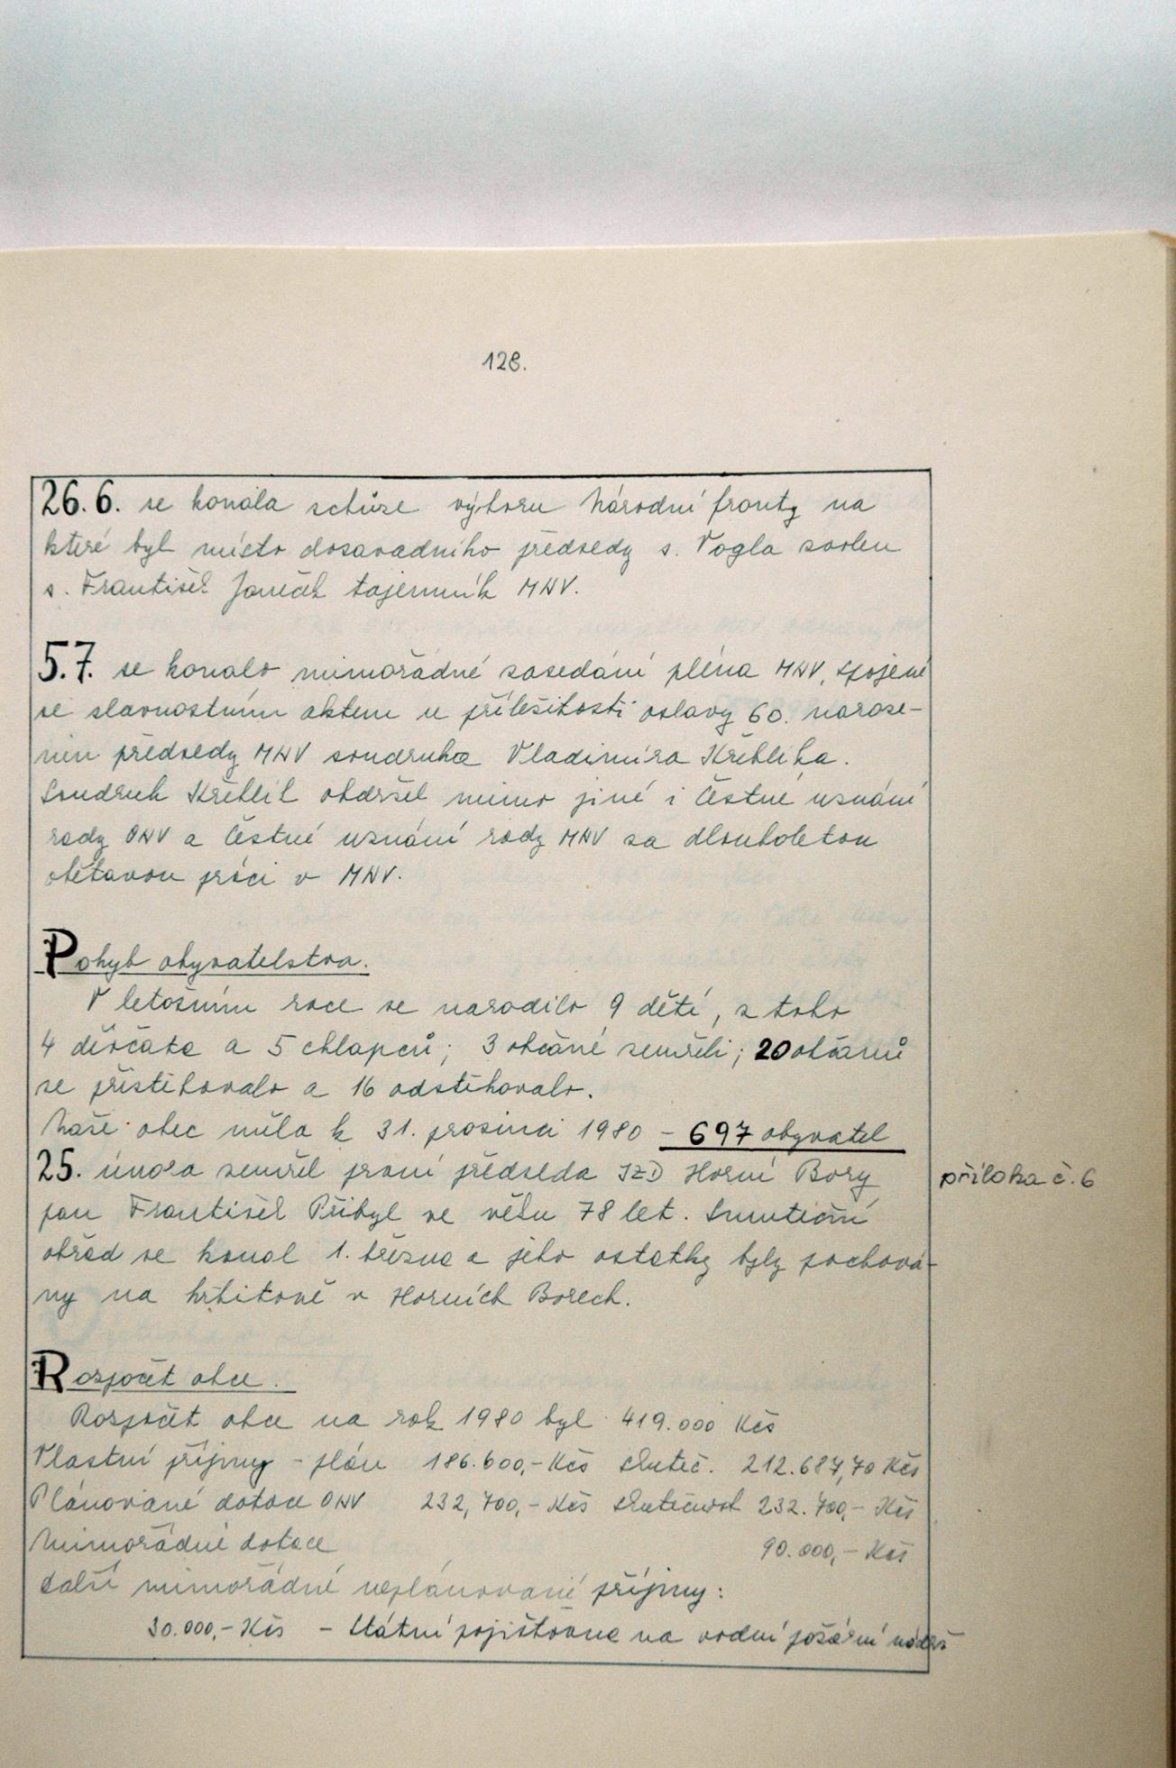 128.
26.6. se konala schůze výboru Národní fronty na
které byl místo dosavadního předsedy s. Vogla zvolen
s. František Janeček tajemník MNV.
5.7. se konalo mimořádné zasedání pléna MNV, spojené
se slavnostním aktem u příležitosti oslavy 60. naroze-
nin předsedy MNV soudruha Vladimíra Křehlíka.
Soudruh Křehlík obdržel mimo jiné i Čestné uznání
rady ONV a Čestné uznání rady MNV za dlouholetou
obětavou práci v MNV.
Pohyb obyvatelstva.
V letošním roce se narodilo 9 dětí, z toho
4 děvčata a 5 chlapců; 3 občané zemřeli; 20 občanů
se přistěhovalo a 16 odstěhovalo.
Naše obec měla k 31. prosinci 1980 – 697 obyvatel
25. února zemřel první předseda JZD Horní Bory
pan František Přibyl ve věku 78 let. Smuteční
příloha č.6
obřad se konal 1. března a jeho ostatky byly pochová-
ny na hřbitově v Horních Borech.
Rozpočet obce.
Rozpočet obce na rok 1980 byl 419.000 Kčs
Vlastní příjmy – plán 186.600,– Kčs skuteč. 212.687,70 Kčs
Plánované dotace ONV 232,700,– Kčs skutečnost 232.700,– Kčs
Mimořádné dotace 90.000,– Kčs
další mimořádné neplánované příjmy:
30.000,– Kčs – Státní pojišťovna na vodní požární nádrž